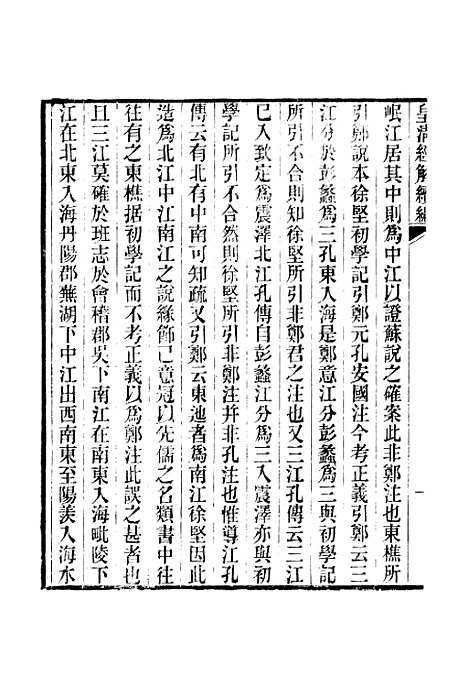 皇淸經解續編
一
岷江居其中則爲中江以證蘇說之確案此非鄭注也東樵所
引鄭說本徐堅初學記引鄭元孔安國注今考正義引鄭云三
江分於彭蠡爲三孔東入海是鄭意江分彭蠡爲三與初學記
所引不合則知徐堅所引非鄭君之注也又三江孔傳云三江
已入致定爲震澤北江孔傳自彭蠡江分爲三入震澤亦與初
學記所引不合然則徐堅所引非鄭注并非孔注也惟導江孔
傳云有北有中南可知疏又引鄭云東迆者爲南江徐堅因此
造爲北江中江南江之說緣飾己意冠以先儒之名類書中往
往有之東樵据初學記而不考正義以爲鄭注此誤之甚者也
且三江莫確於班志於會稽郡吳下南江在南東入海毗陵下
江在北東入海丹陽郡蕪湖下中江出西南東至陽羨入海水